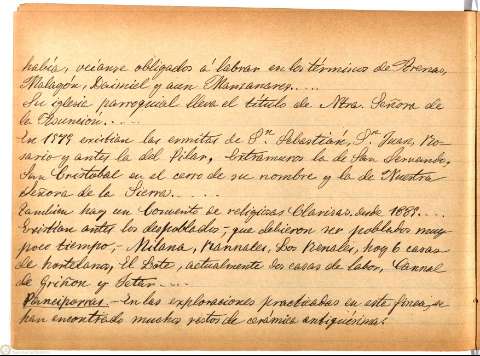 había, veíanse obligados a labrar en los términos de Arenas,
Malagón, Daimiel y aun Manzanares.....
Su iglesia parroquial lleva el titulo de Ntra. Señora de
la Asunción.....
En 1579 existian las ermitas de Sn. Sebastián, Sn. Juan, Ro-
sario y antes la del Pilar. Extramuros la de San Fernando,
San Cristobal en el cerro de su nombre y la de Nuestra
Señora de la Sierra.....
Tambien hay un Convento de religiosas Clarisas desde
Existian antes los despoblados; que debieron ser poblados muy
poco tiempo,- Milana, Renales, hoy 6 casas
de hortelanos, El Lote, actualmente dos casas de labor,
de Griñon y
- En las exploraciones practicadas en esta finca, se
han encontrado muchos restos de cerámica antiquísima.